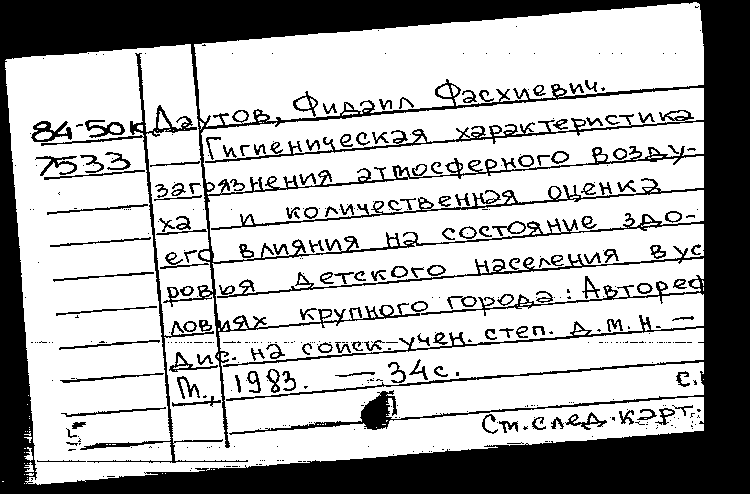 84-50к Даутов, Фидаил Фасхиевич.
7533 Гигиеническая характеристика
загрязнения атмосферного возду-
ха и количественная оценка
его влияния на состояние здо-
ровья детского населения в ус
ловиях крупного города: Автореф
дис. на соиск. учен. степ. д.м.н. —
М., 1983. — 34с.
с.
5
См. след. карт.